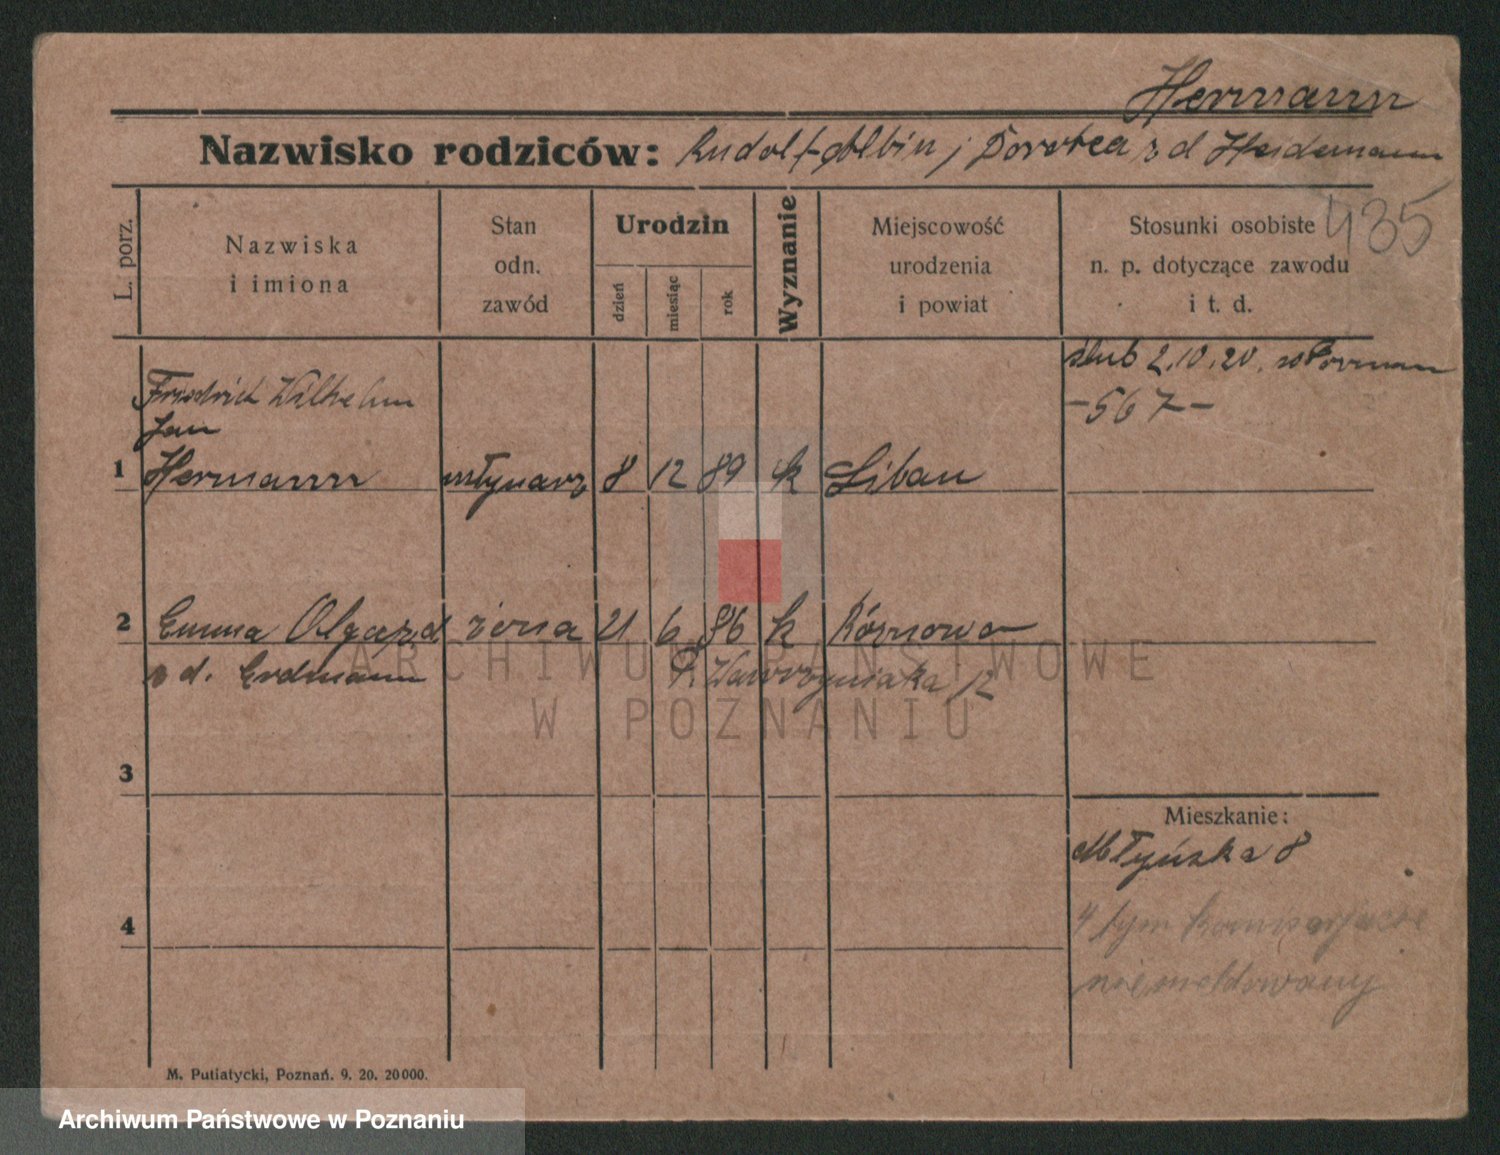 Hermann
Nazwisko rodziców: Rudolf Albin i Dorotea z d Heidemann
435
L. porz.
Nazwiska
i imiona
Stan
odn.
zawód
Urodzin
dzień
miesiąc
rok
Wyznanie
Miejscowość
urodzenia
i powiat
Stosunki osobiste
n. p. dotyczące zawodu
i t. d.
ślub 2.10.20. w Poznan
-567-
Friedrich Wilhelm
Jan
1 Hermann młynarz 8 12 89 k Libau
2 Emma Olga z d żona 21 6 86 k
z d. Erdmann P. Wawrzyniaka 12
ARCHIWUM PAŃSTWOWE
W POZNANIU
3
Mieszkanie:
Młyńska 8
4
w tym komisarjacie
niemeldowany
M. Putiatycki, Poznań. 9. 20. 20000.
Archiwum Państwowe w Poznaniu